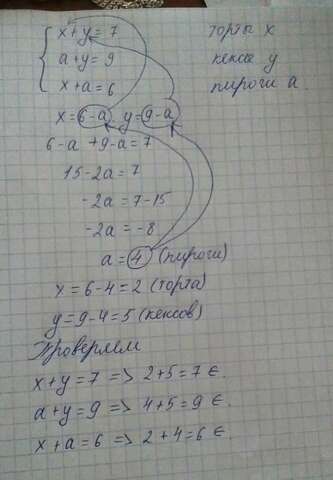 x+y=7 торты x
a+y=9 кексы y
x+a=6 пироги a
x=6-a y=9-a
6-a+9-a=7
15-2a=7
-2a=7-15
-2a=-8
a=4 (пироги)
x=6-4=2 (торта)
y=9-4=5 (кексов)
Проверяем
x+y=7 => 2+5=7 €.
a+y=9 => 4+5=9 €.
x+a=6 => 2+4=6 €.